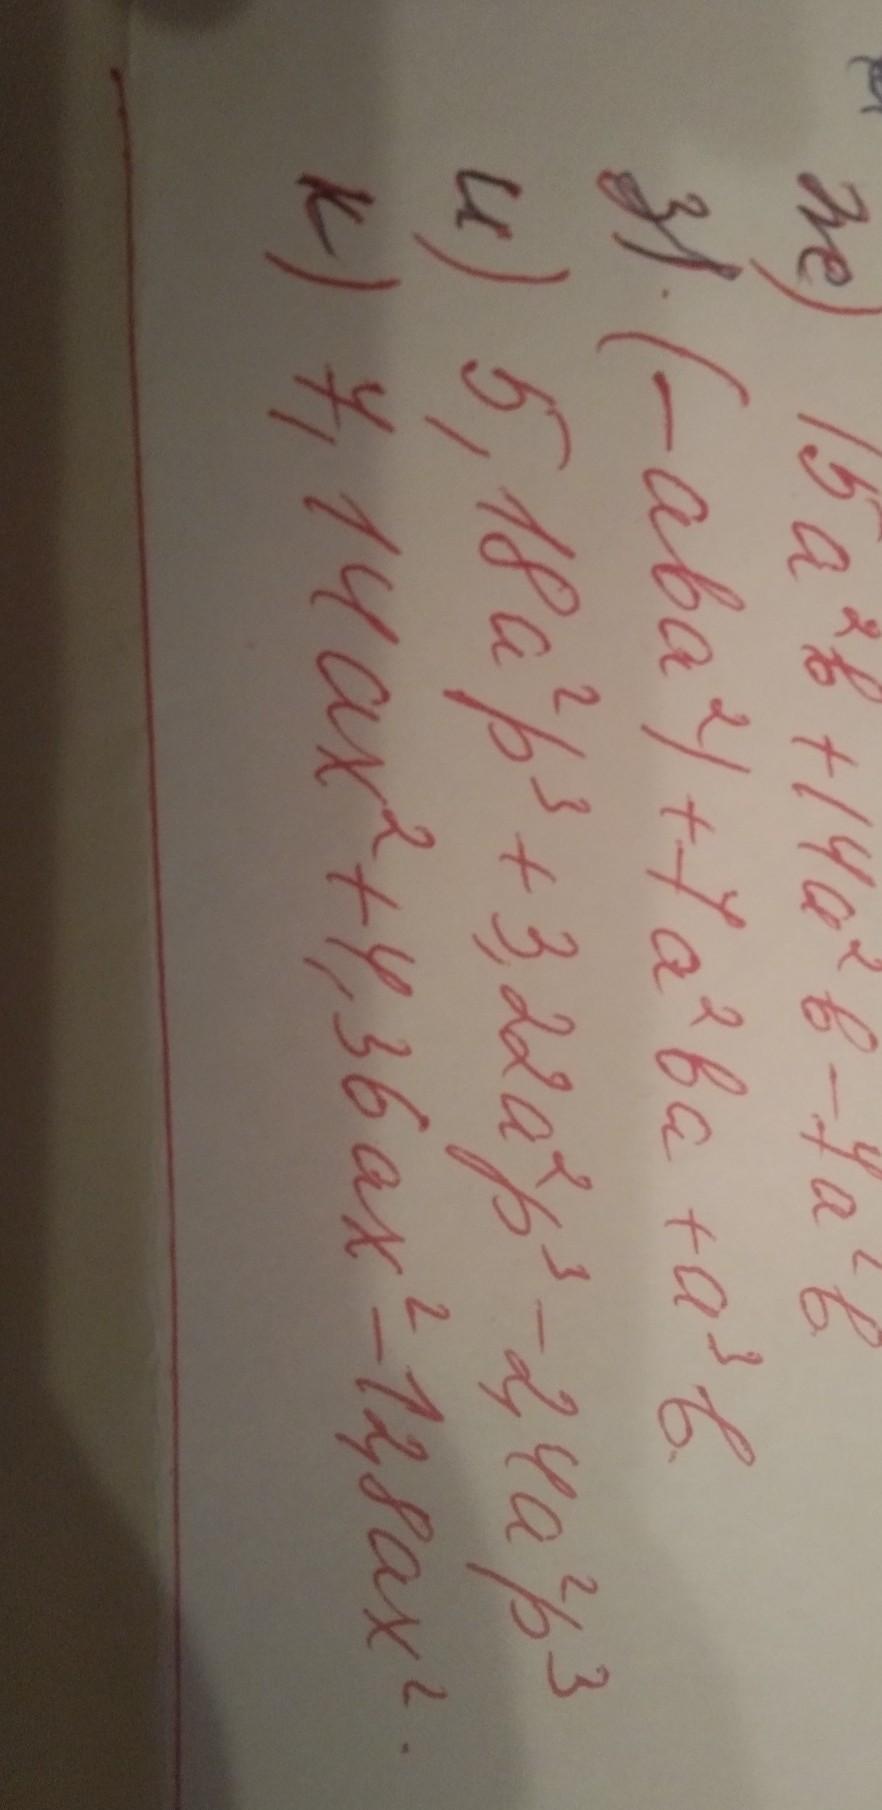 же) 15a²b + 14a²b - 7a²b
з) (-aba²) + 7a²ba + a³b.
и) 5,18a²b³ + 3,22a²b³ - 2,4a²b³
к) 7,14ax² + 4,36ax² - 12,8ax².